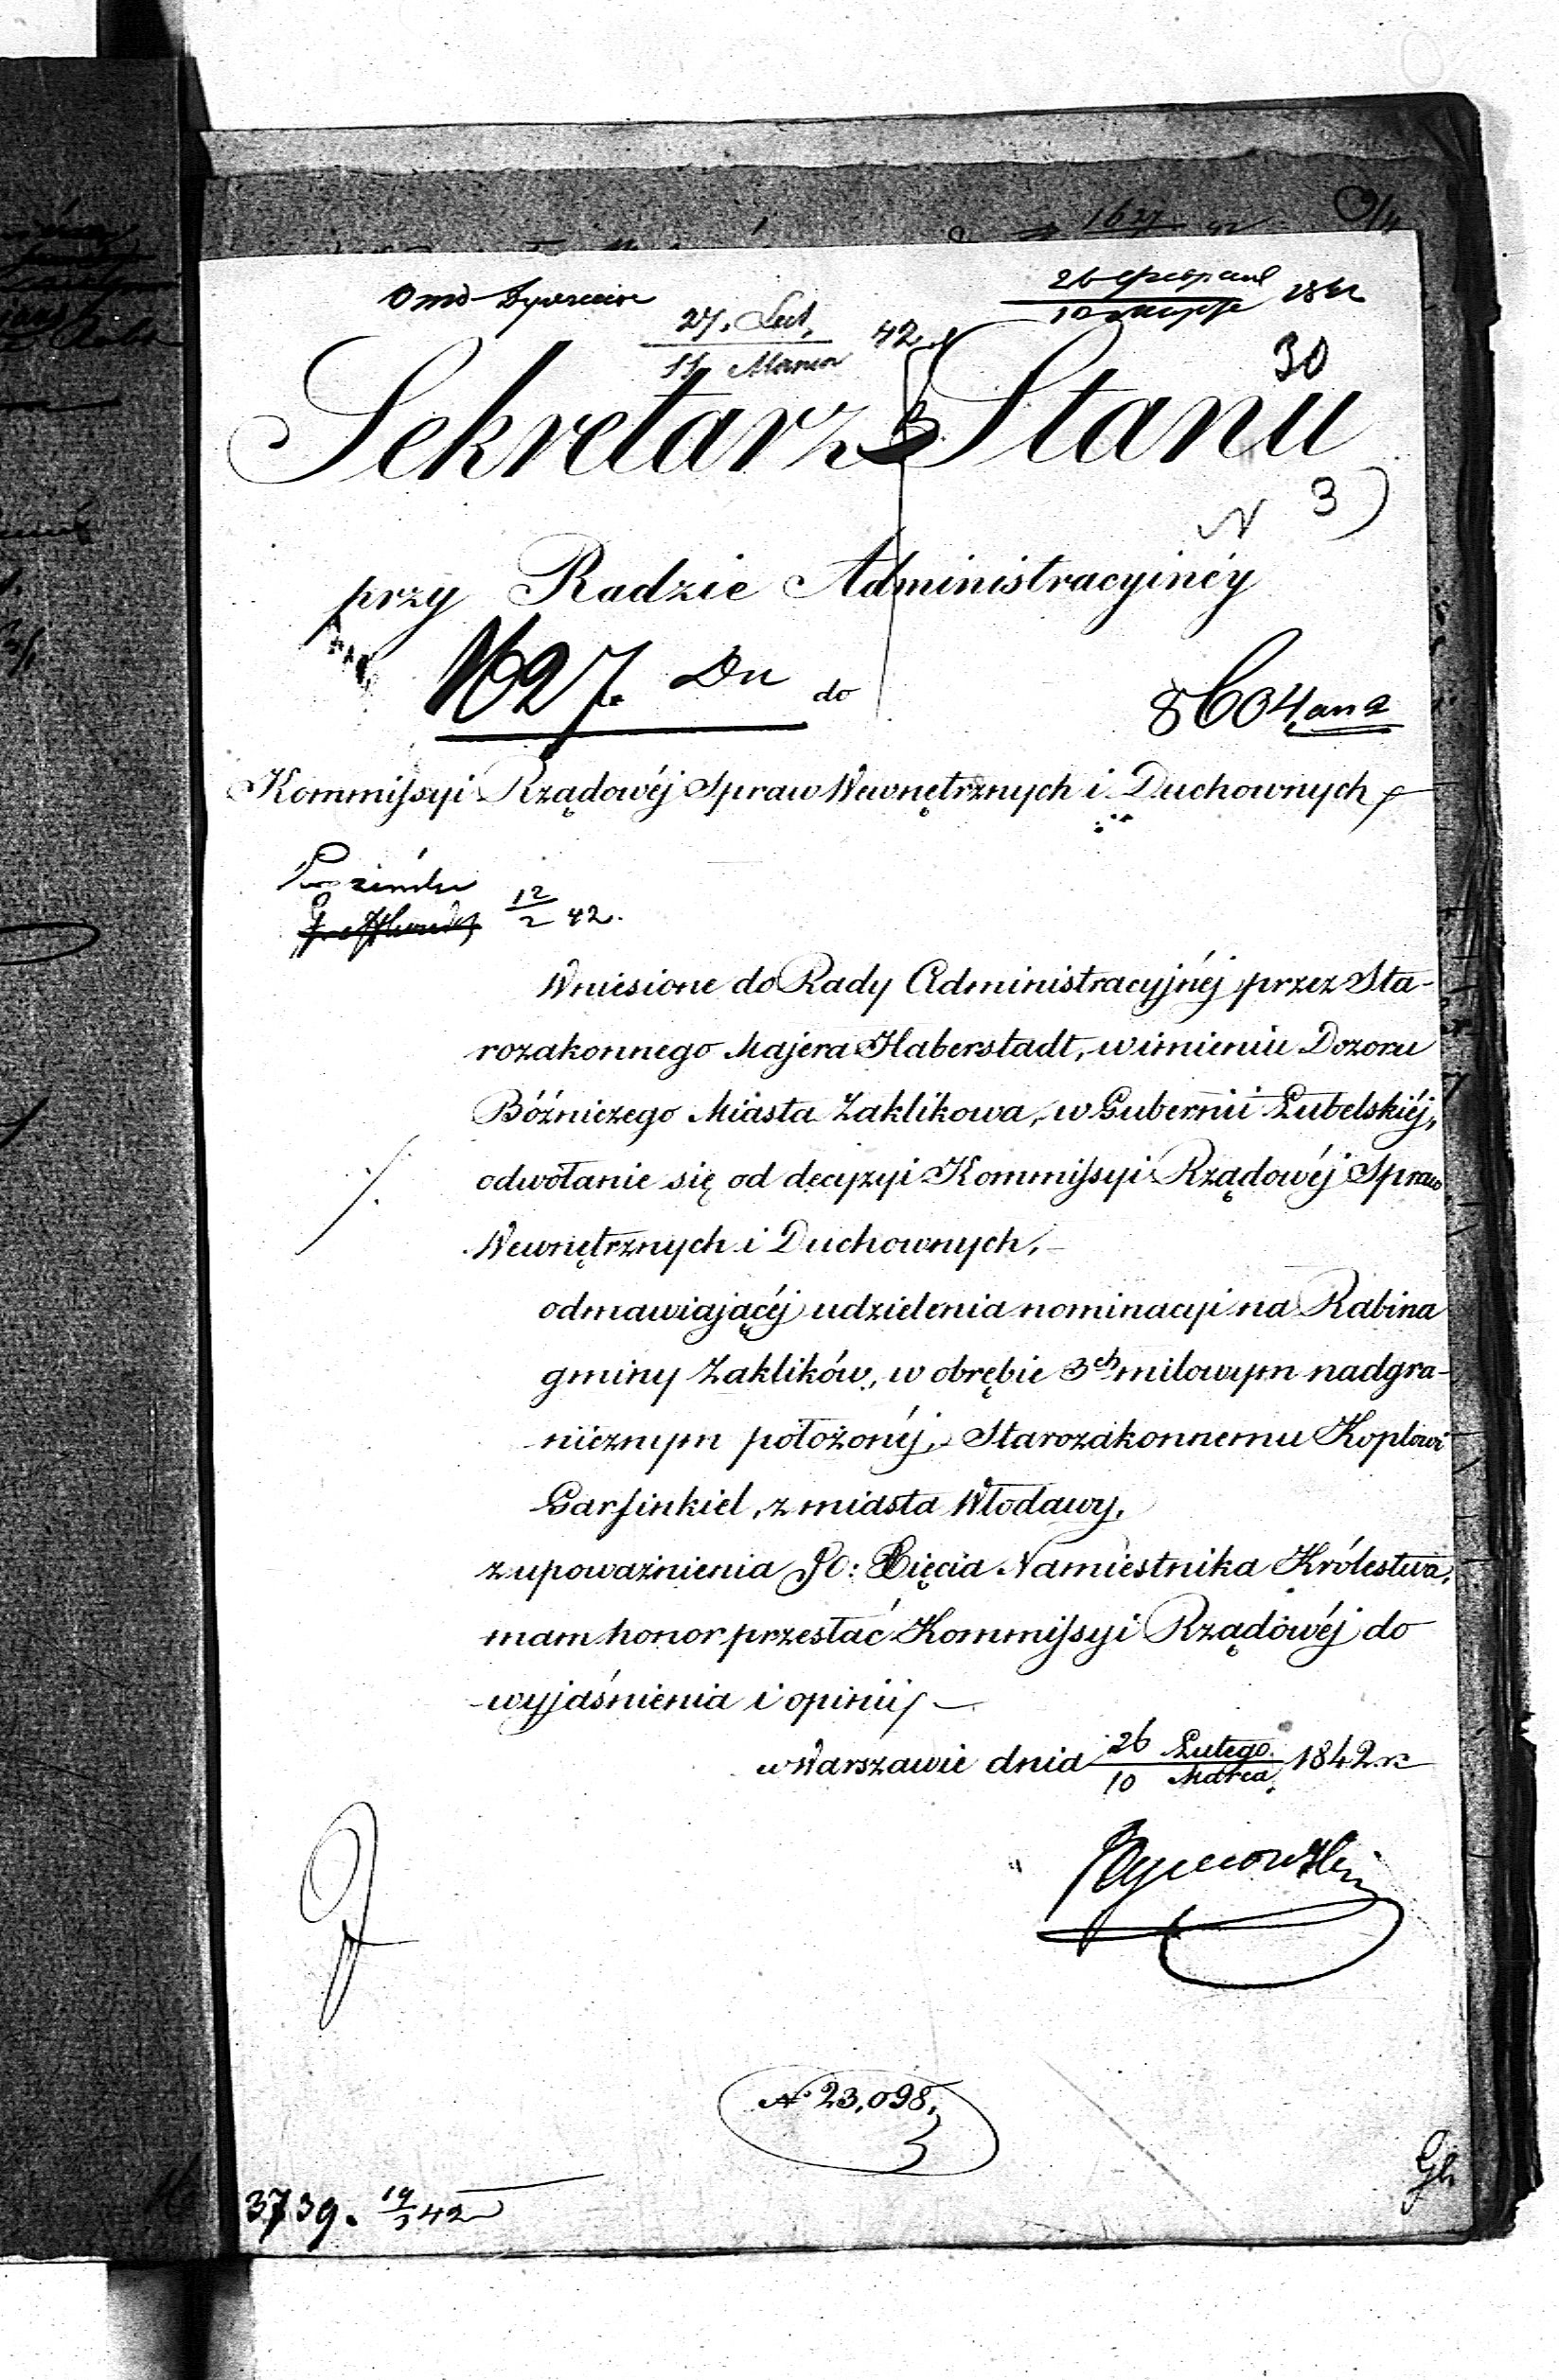 26 февраля 1842
10 марта
27. Lut. 42.
11 Marca
30
Sekretarz Stanu
N 3)
przy Radzie Administracyinéy
1627. do
8604
Kommissyi Rządowéj Spraw Wewnętrznych i Duchownych
12/2 42.
Wniesione do Rady Administracyjnéj przez Sta-
rozakonnego Majera Haberstadt, w imieniu Dozoru
Bóźniczego Miasta Zaklikowa, w Gubernii Lubelskiéj,
odwołanie się od decyzyi Kommissyi Rządowéj Spraw
Wewnętrznych i Duchownych,
odmawiającéj udzielenia nominacyi na Rabina
gminy Zaklików, w obrębie 3ch milowym nadgra-
nicznym położonéj, Starozakonnemu Koplowi
Garfinkiel, z miasta Włodawy,
z upoważnienia JO: Xięcia Namiestnika Królestwa,
mam honor przesłać Kommissyi Rządowéj do
wyjaśnienia i opinii
w Warszawie dnia 26 Lutego 1842 r
10 Marca
N 23,098,
3739. 19/3 42